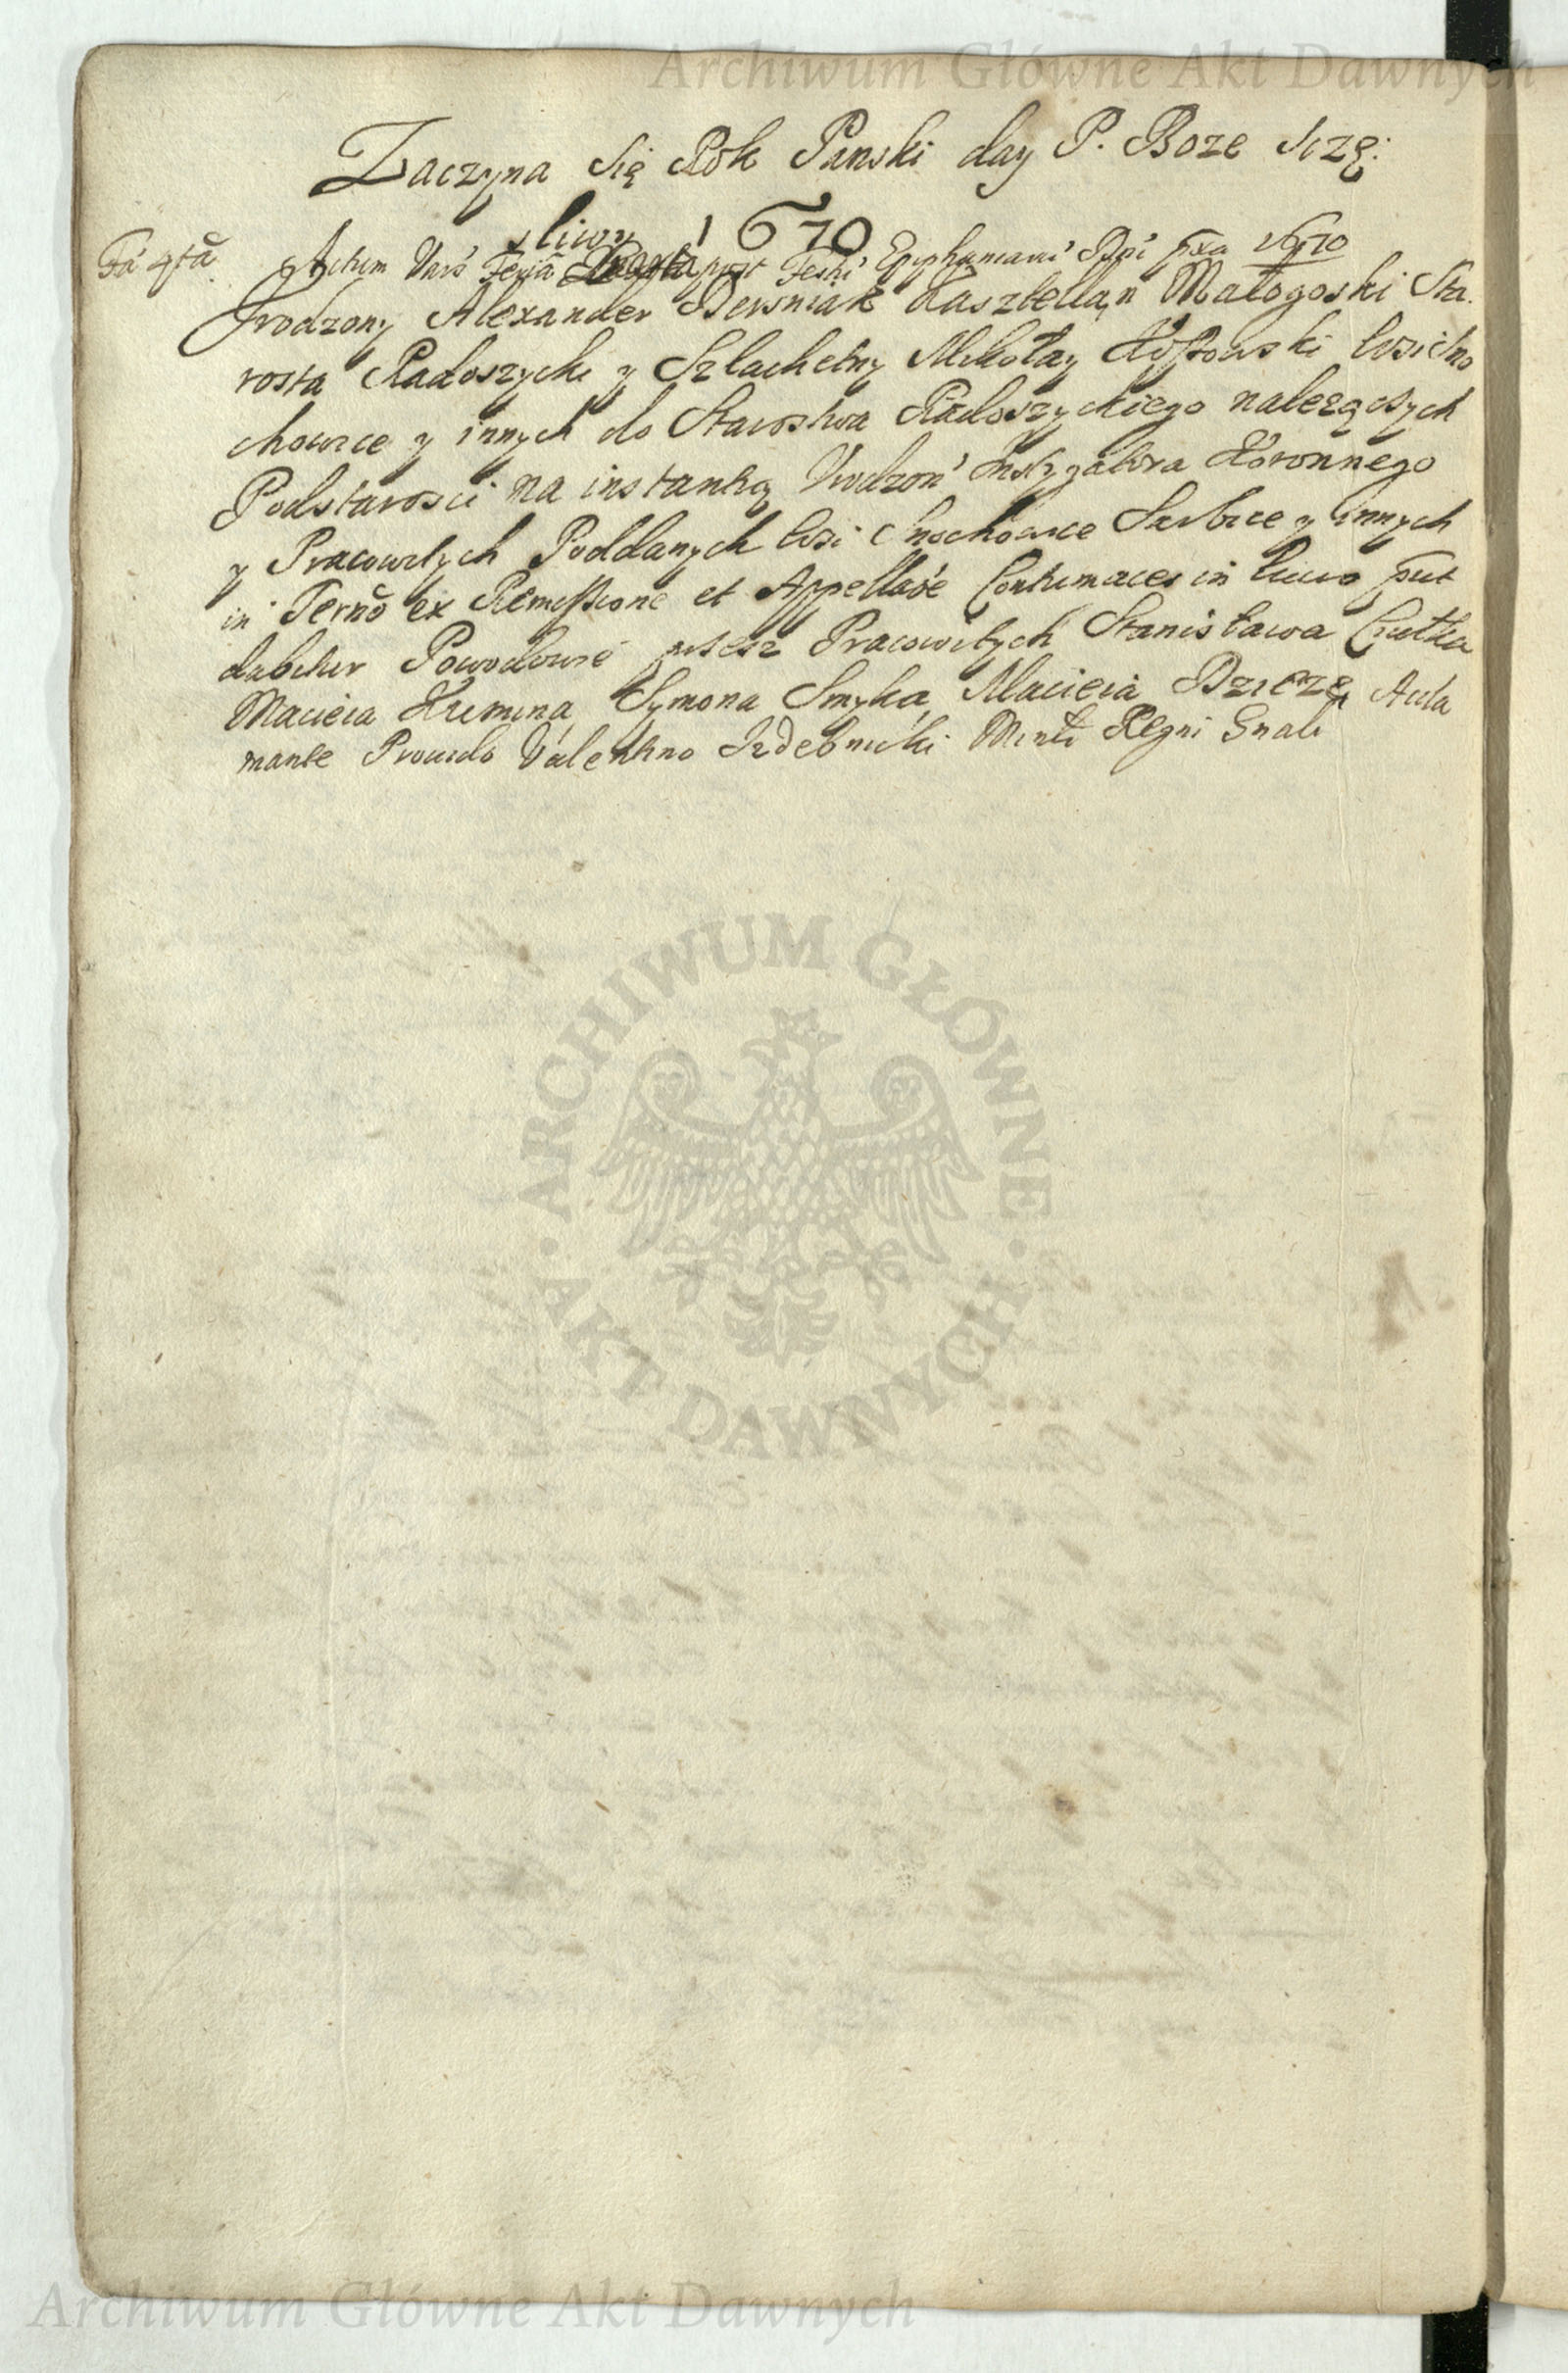 Archiwum Główne Akt Dawnych
Zaczyna się Rok Panski day P. Boze sczę:
sliwy 1670
Actum Vars Feria post Festi Epiphaniani Dni pxa 1670
Urodzony Alexander Dersniak Kasztellan Małogoski Sta.
rosta Radoszycki y Szlachetny Mikołay Wsi Chno
chowice y innych do Starostwa Radoszyckiego nalezączych
Podstarosci na instantią Urodzon Instygatora Koronnego
y Pracowitych Poddanych Wsi Chnochowice y innych
in Termo ex Remissione et Appellaoe Contumaces in
dabitur Powodowie przesz Pracowitych Stanisława
Macieia Symona Smyka Macieia Acla
mante Provido Valentino Izdebnicki Regni Gnali
ARCHIWUM GŁÓWNE
AKT DAWNYCH
Archiwum Główne Akt Dawnych